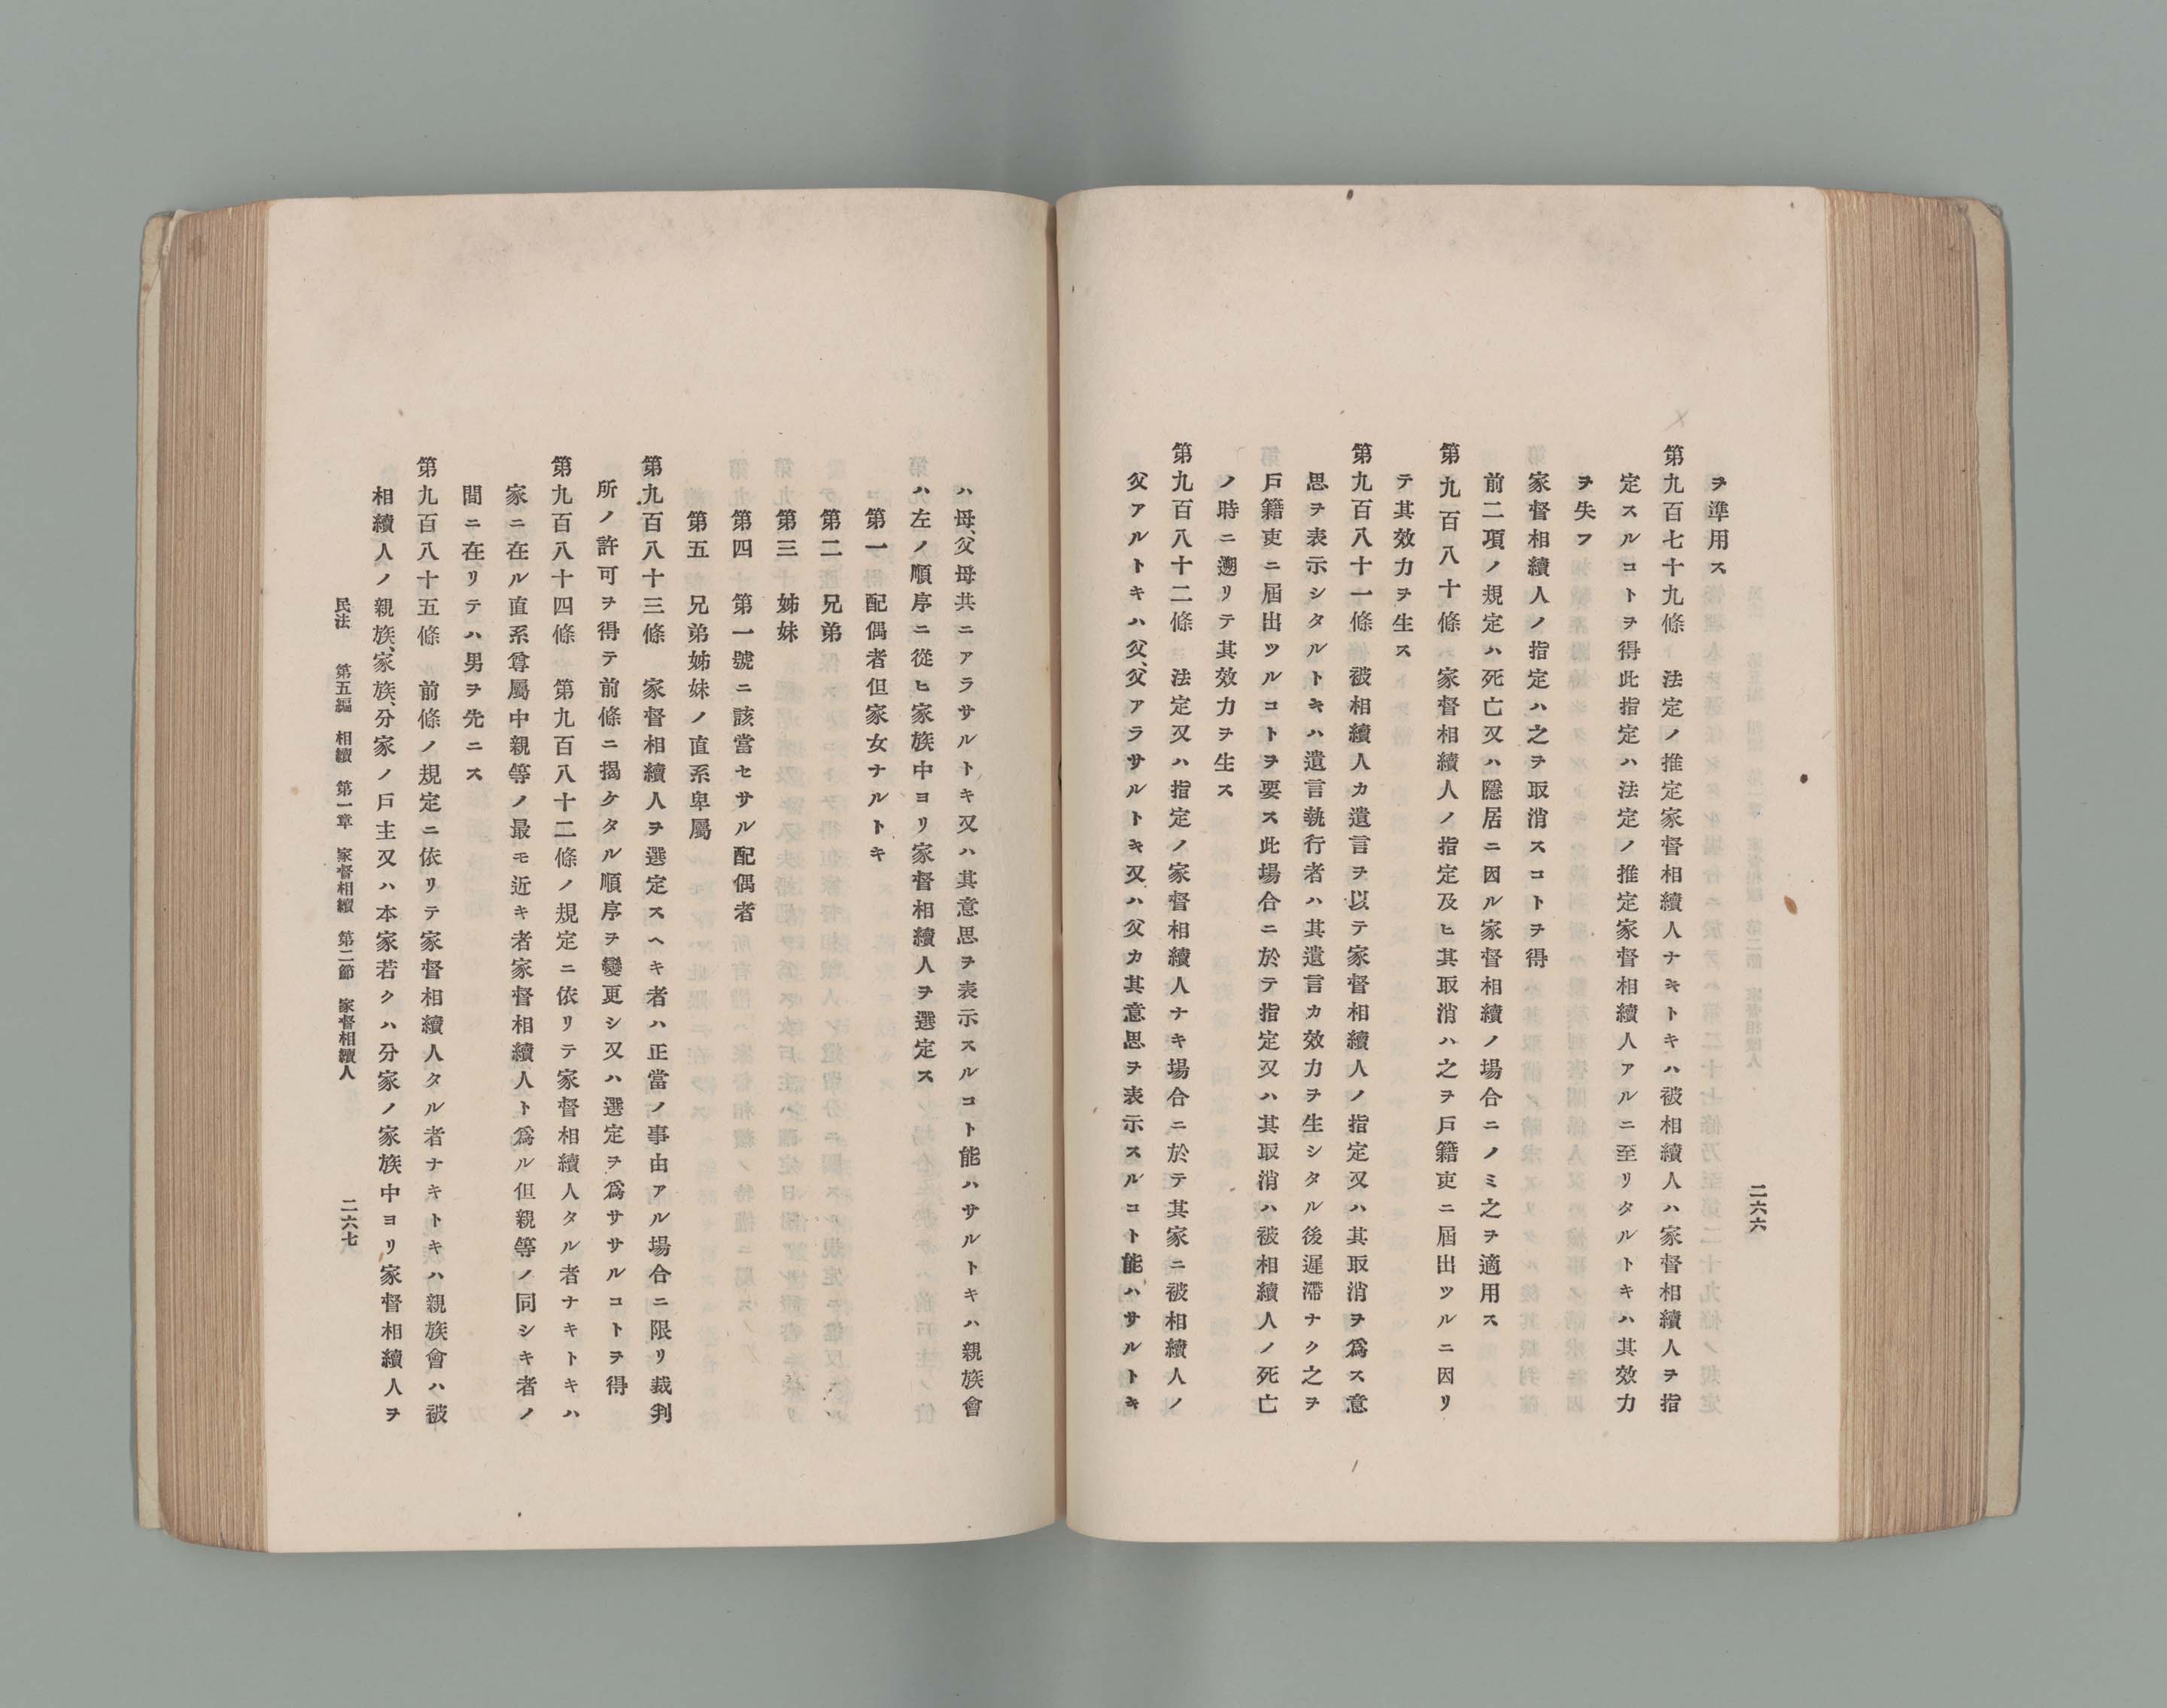 二六六
ヲ準用ス
第九百七十九條　法定ノ推定家督相續人ナキトキハ被相續人ハ家督相續人ヲ指
定スルコトヲ得此指定ハ法定ノ推定家督相續人アルニ至リタルトキハ其效力
ヲ失フ
家督相續人ノ指定ハ之ヲ取消スコトヲ得
前二項ノ規定ハ死亡又ハ隱居ニ因ル家督相續ノ場合ニノミ之ヲ適用ス
第九百八十條　家督相續人ノ指定及ヒ其取消ハ之ヲ戶籍吏ニ屆出ツルニ因リ
テ其效力ヲ生ス
第九百八十一條　被相續人カ遺言ヲ以テ家督相續人ノ指定又ハ其取消ヲ爲ス意
思ヲ表示シタルトキハ遺言執行者ハ其遺言カ效力ヲ生シタル後遲滯ナク之ヲ
戶籍吏ニ屆出ツルコトヲ要ス此場合ニ於テ指定又ハ其取消ハ被相續人ノ死亡
ノ時ニ遡リテ其效力ヲ生ス
第九百八十二條　法定又ハ指定ノ家督相續人ナキ場合ニ於テ其家ニ被相續人ノ
父アルトキハ父、父アラサルトキ又ハ父カ其意思ヲ表示スルコト能ハサルトキ
ハ母、父母共ニアラサルトキ又ハ其意思ヲ表示スルコト能ハサルトキハ親族會
ハ左ノ順序ニ從ヒ家族中ヨリ家督相續人ヲ選定ス
第一　配偶者但家女ナルトキ
第二　兄弟
第三　姊妹
第四　第一號ニ該當セサル配偶者
第五　兄弟姊妹ノ直系卑屬
第九百八十三條　家督相續人ヲ選定スヘキ者ハ正當ノ事由アル場合ニ限リ裁判
所ノ許可ヲ得テ前條ニ揭ケタル順序ヲ變更シ又ハ選定ヲ爲ササルコトヲ得
第九百八十四條　第九百八十二條ノ規定ニ依リテ家督相續人タル者ナキトキハ
家ニ在ル直系尊屬中親等ノ最モ近キ者家督相續人ト爲ル但親等ノ同シキ者ノ
間ニ在リテハ男ヲ先ニス
第九百八十五條　前條ノ規定ニ依リテ家督相續人タル者ナキトキハ親族會ハ被
相續人ノ親族、家族、分家ノ戶主又ハ本家若クハ分家ノ家族中ヨリ家督相續人ヲ
民法　第五編　相續　第一章　家督相續　第二節　家督相續人　二六七